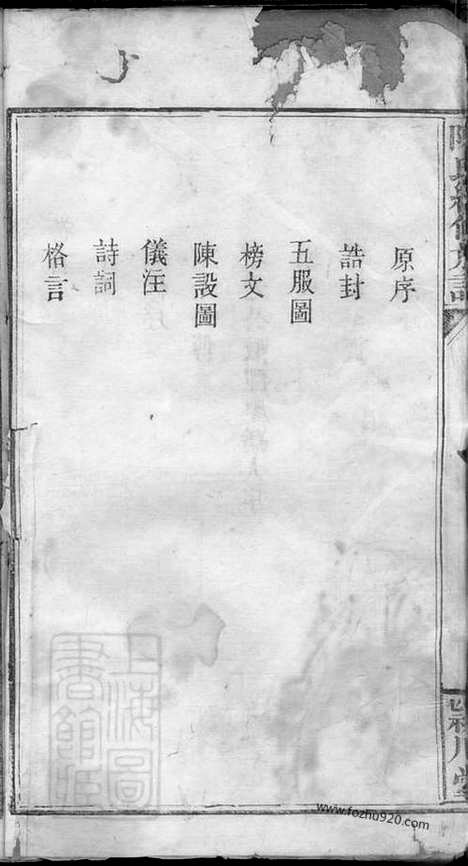 原序
誥封
五服圖
榜文
陳設圖
儀注
詩詞
格言
上海圖書館印
www.fozhu920.com